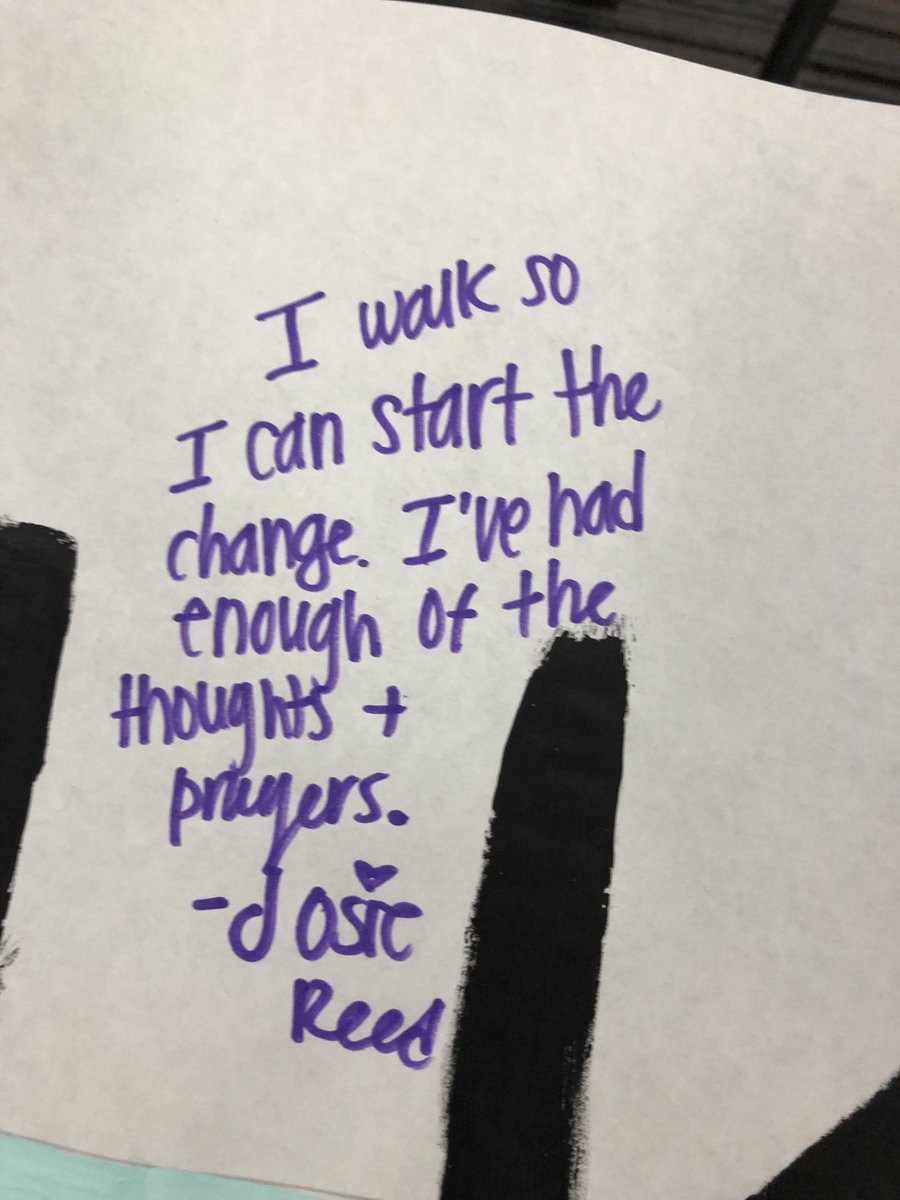 I walk so
I can start the
change. I've had
enough of the
thoughts +
prayers.
-Josie
Reed